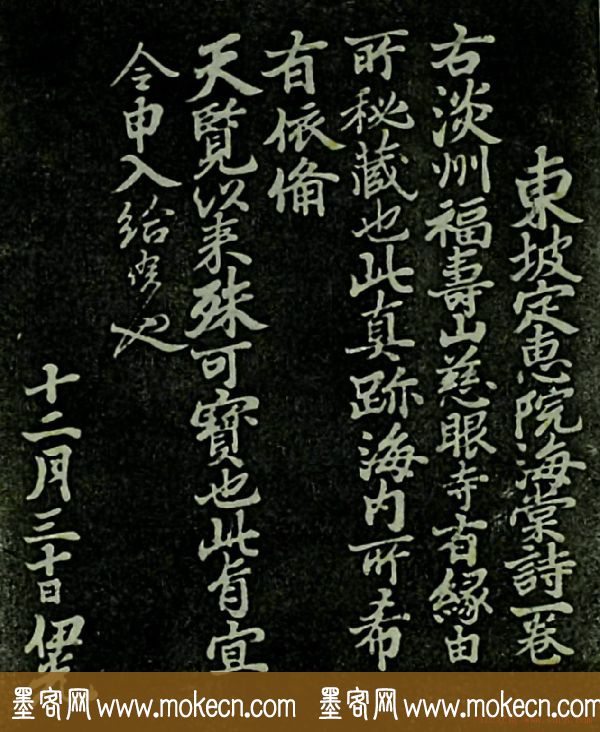 東坡定恵院海棠詩一卷
右淡州福壽山慈眼寺有縁由
所秘藏也此真跡海内所希
有依備
天覽以来殊可寶也此旨宜
令申入給候也
十二月三十日 伊
墨客网 www.mokecn.com 墨客网 www.mokecn.com